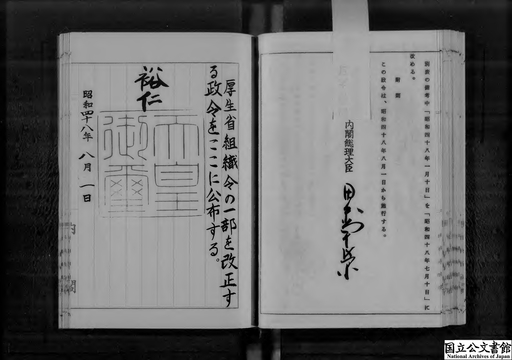 別表の備考中「昭和四十八年一月十日」を「昭和四十八年七月十日」に
改める。
附則
この政令は、昭和四十八年八月一日から施行する。
内閣総理大臣
田中角栄
厚生省組織令の一部を改正す
る政令をここに公布する。
裕仁
天皇
御璽
昭和四十八年八月一日
国立公文書館
National Archives of Japan